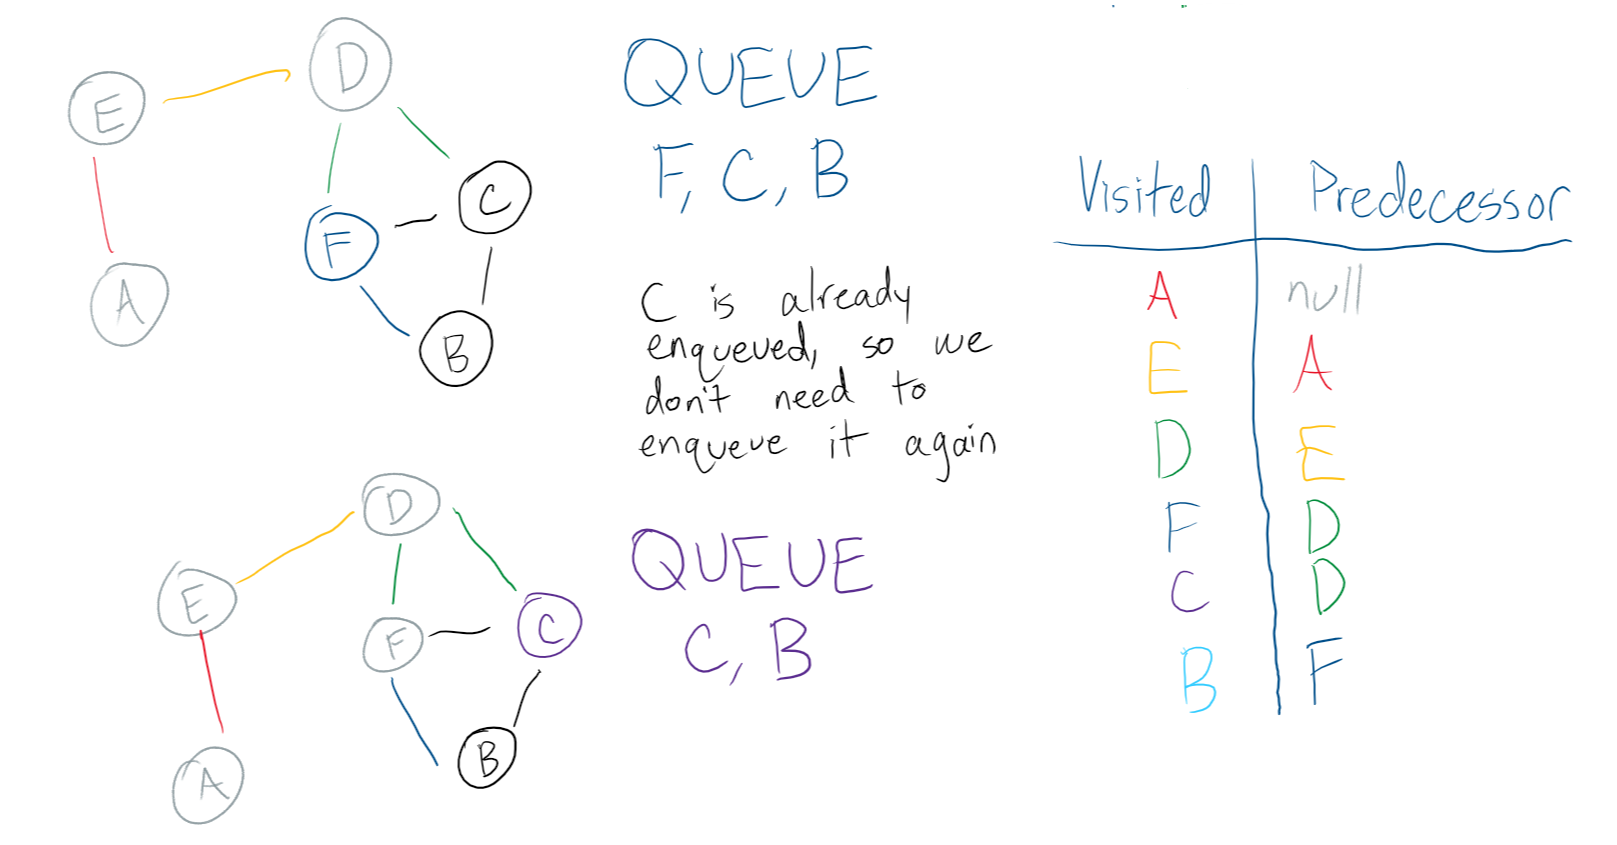 D
E
C
F
A
B
QUEUE
F, C, B
C is already
enqueued, so we
don't need to
enqueue it again
D
E
C
F
B
A
QUEUE
C, B
Visited Predecessor
A null
E A
D E
F D
C D
B F